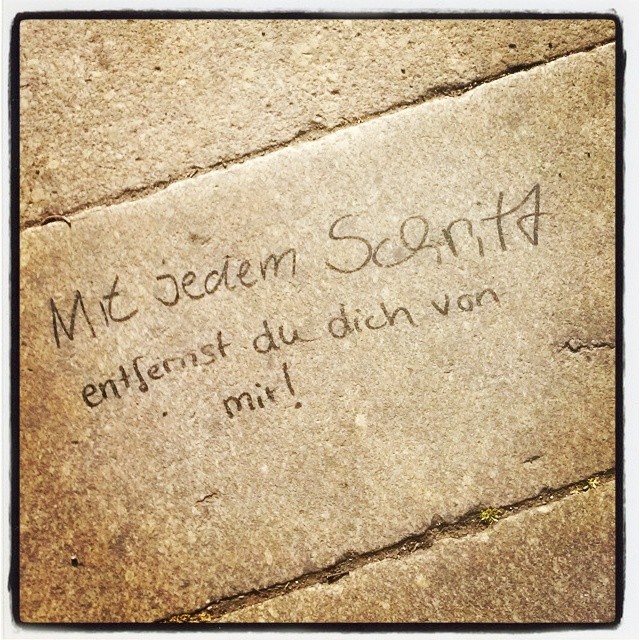 Mit jedem Schritt
entfernst du dich von
mir!